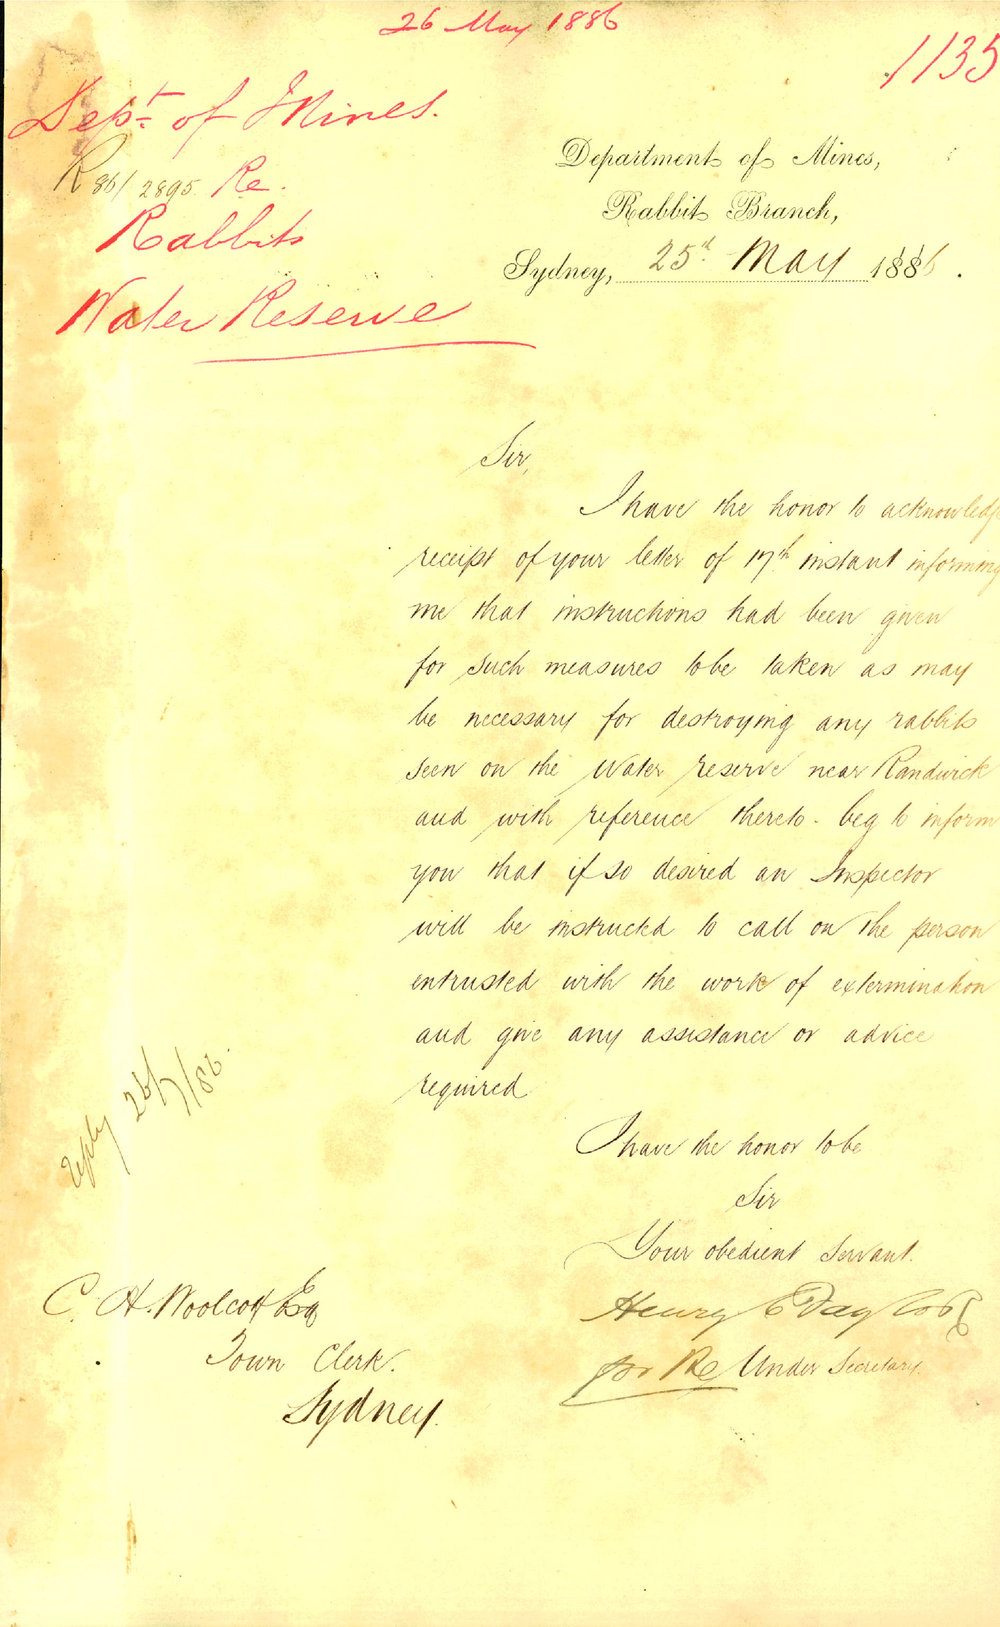 26 May 1886
1135
Dept of Mines.
R 86/2895. Re.
Rabbits
Water Reserve
Department of Mines,
Rabbit Branch,
Sydney, 25th May 1886.
Sir,
I have the honor to acknowledge
receipt of your letter of 17th instant informing
me that instructions had been given
for such measures to be taken as may
be necessary for destroying any rabbits
seen on the Water reserve near Randwick
and with reference thereto. beg to inform
you that if so desired an Inspector
will be instructed to call on the person
entrusted with the work of extermination
and give any assistance or advice
required
I have the honor to be
Sir
Your obedient Servant.
Henry E Taylor
for the Under Secretary.
reply 26/7/86.
C. H. Woolcott Esq
Town Clerk.
Sydney.